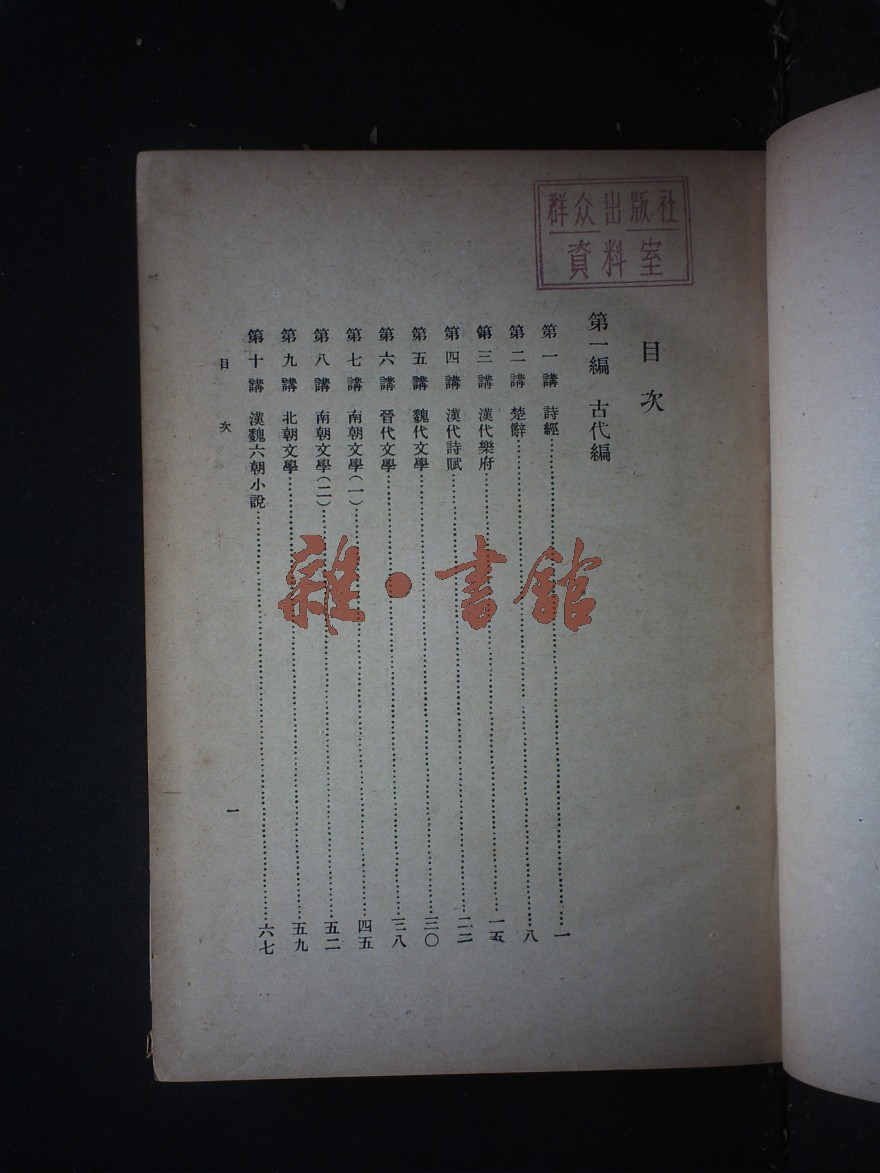 群众出版社
資料室
目次
第一編 古代編
第一講 詩經…………一
第二講 楚辭…………八
第三講 漢代樂府…………一五
第四講 漢代詩賦…………二二
第五講 魏代文學…………三〇
第六講 晉代文學…………三八
第七講 南朝文學(一)…………四五
第八講 南朝文學(二)…………五二
第九講 北朝文學…………五九
第十講 漢魏六朝小說…………六七
目次 一
雜·書館